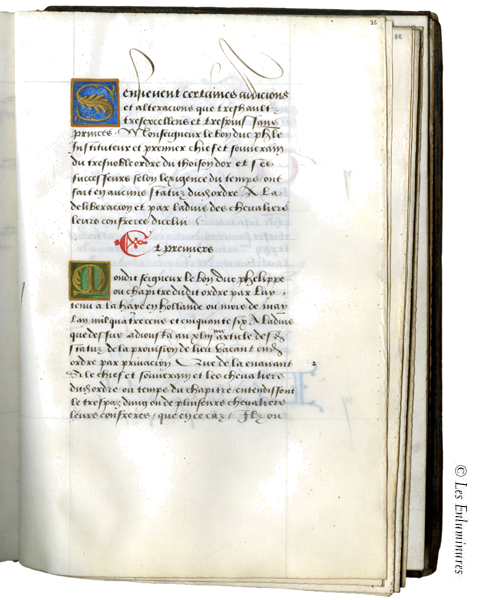 36
38
Sensievent certaines adicions
et alteracions que treshault
tresexcellens et trespuissans
princes Monseigneur le bon duc phle
Instituteur et premier chief et souverain
du tresnoble ordre du thoison dor et ses
successeurs selon lexigence du temps ont
fait en aucuns statuz dudit ordre A la
deliberacion et par ladvis des chevaliers
leurs confreres dicellui
Et premiers
Mondit seigneur le bon duc phelippe
ou chapitre dudit ordre par luy
tenu a la haye en hollande ou mois de may
Lan mil quatre cens et cinquante six A ladvis
que dessus adiousta au article des
statuz de la provision de lieu vacant oudit
ordre par privacion Que de la enavant
Se le chief et souverain et les chevaliers
dudit ordre ou temps du chapitre entendissent
le trespaz dung ou de pluseurs chevaliers
leurs confreres, que en ce caz, Ilz ou
© Les Enluminures